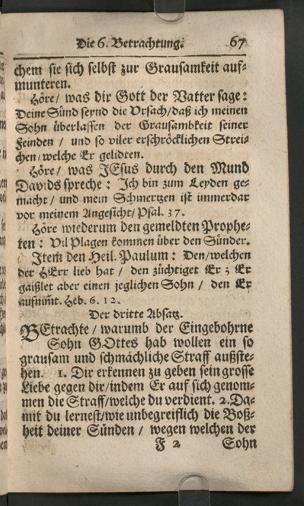 Die 6. Betrachtung. 67
chem sie sich selbst zur Grausamkeit auf-
munteren.
Höre / was dir Gott der Vatter sage :
Deine Sünd seynd die Ursach / daß ich meinen
Sohn überlassen der Grausambkeit seiner
Feinden / und so viler erschröcklichen Strei-
chen / welche Er gelidten.
Höre / was JEsus durch den Mund
Davids spreche : Ich bin zum Leyden ge-
macht / und mein Schmertzen ist immerdar
vor meinem Angesicht / Psal. 37.
Höre wiederum den gemeldten Prophe-
ten : Vil Plagen kommen über den Sünder.
Item den Heil. Paulum : Den / welchen
der HErr lieb hat / den züchtiget Er ; Er
gaißlet aber einen jeglichen Sohn / den Er
aufnimt. Heb. 6. 12.
Der dritte Absatz.
BEtrachte / warumb der Eingebohrne
Sohn GOttes hab wollen ein so
grausam und schmächliche Straff außste-
hen. 1. Dir erkennen zu geben sein grosse
Liebe gegen dir / indem Er auf sich genom-
men die Straff / welche du verdient. 2. Da-
mit du lernest / wie unbegreiflich die Boß-
heit deiner Sünden / wegen welchen der
F 2 Sohn